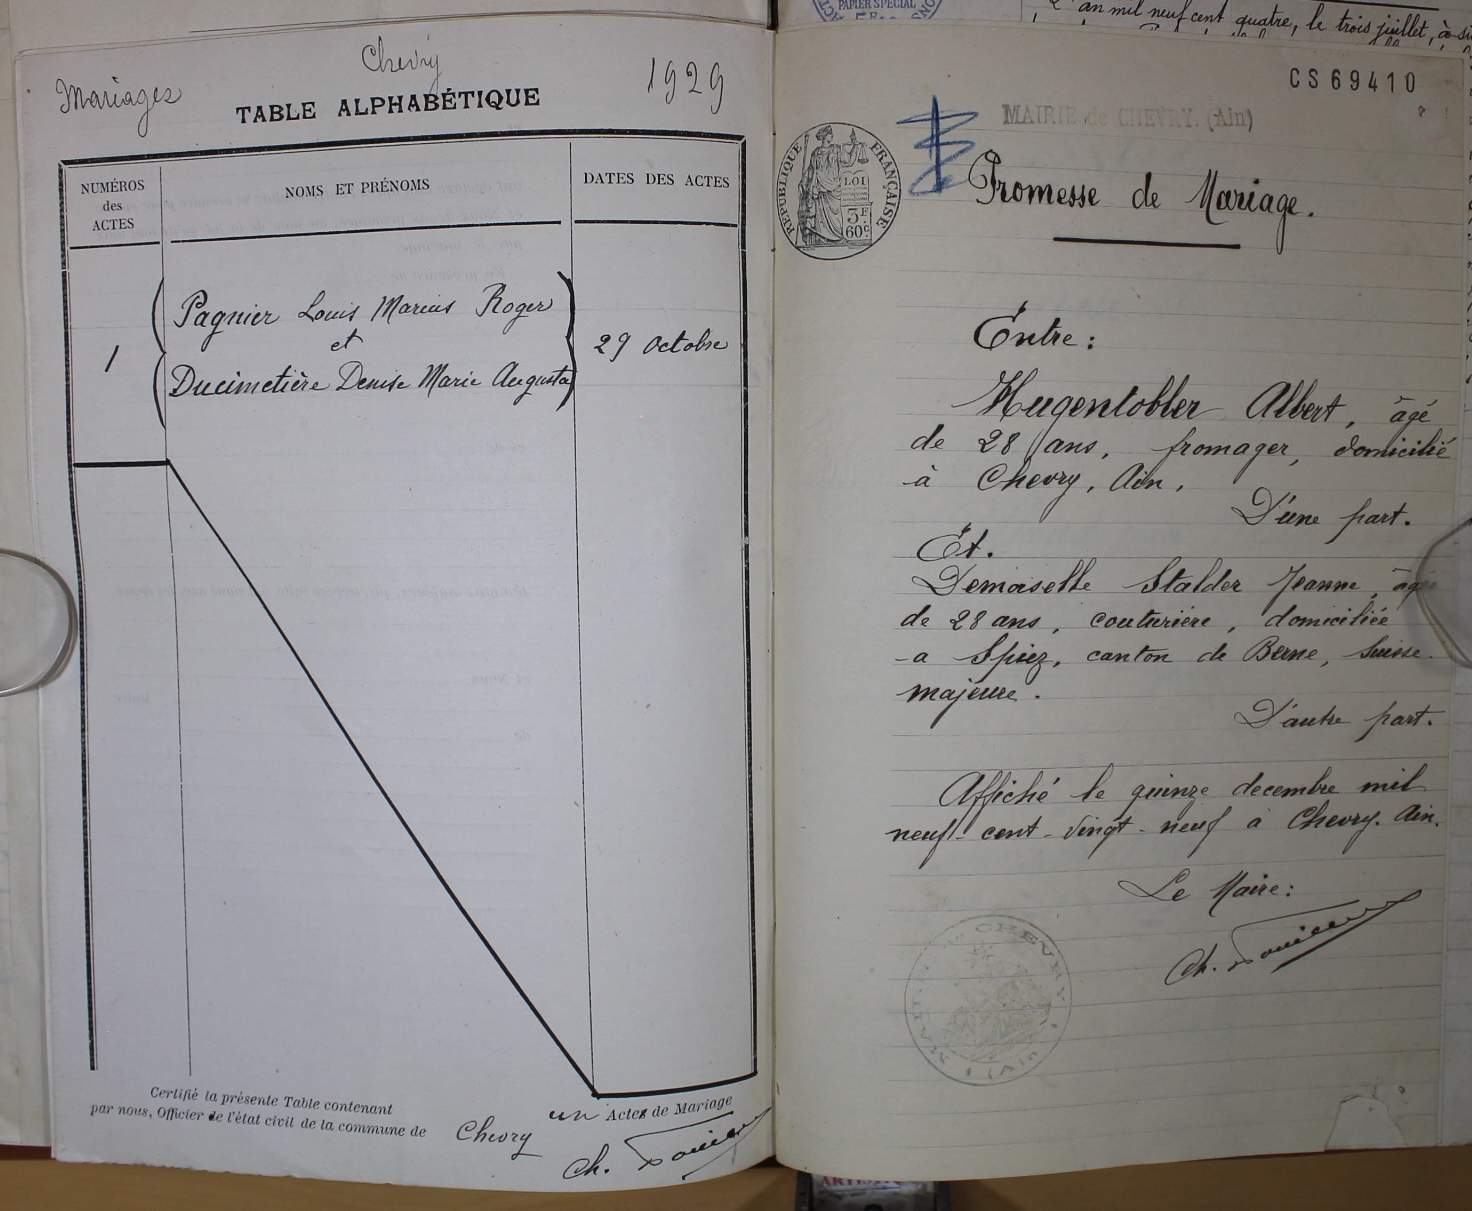 Chevry
Mariages
1929
TABLE ALPHABÉTIQUE
NUMÉROS
des
ACTES
NOMS ET PRÉNOMS
DATES DES ACTES
1
Pagnier Louis Marius Roger
et
Ducimetière Denise Marie Augusta
29 octobre
Certifié la présente Table contenant un Actes de Mariage
par nous, Officier de l'état civil de la commune de Chevry
Ch.
PAPIER SPECIAL
L'an mil neuf cent quatre, le trois juillet, à
CS69410
MAIRIE de CHEVRY. (Ain)
RÉPUBLIQUE FRANÇAISE
LOI
3F
60c
Promesse de Mariage.
Entre:
Hugentobler Albert, âgé
de 28 ans, fromager, domicilié
à Chevry, Ain,
D'une part.
Et.
Demoiselle Stalder Jeanne, âgé
de 28 ans, couturière, domiciliée
a Spiez, canton de Berne, Suisse.
majeure.
D'autre part.
Affiché le quinze decembre mil
neuf-cent-vingt-neuf à Chevry. Ain.
Le Maire:
Ch.
CHEVRY
(AIN)